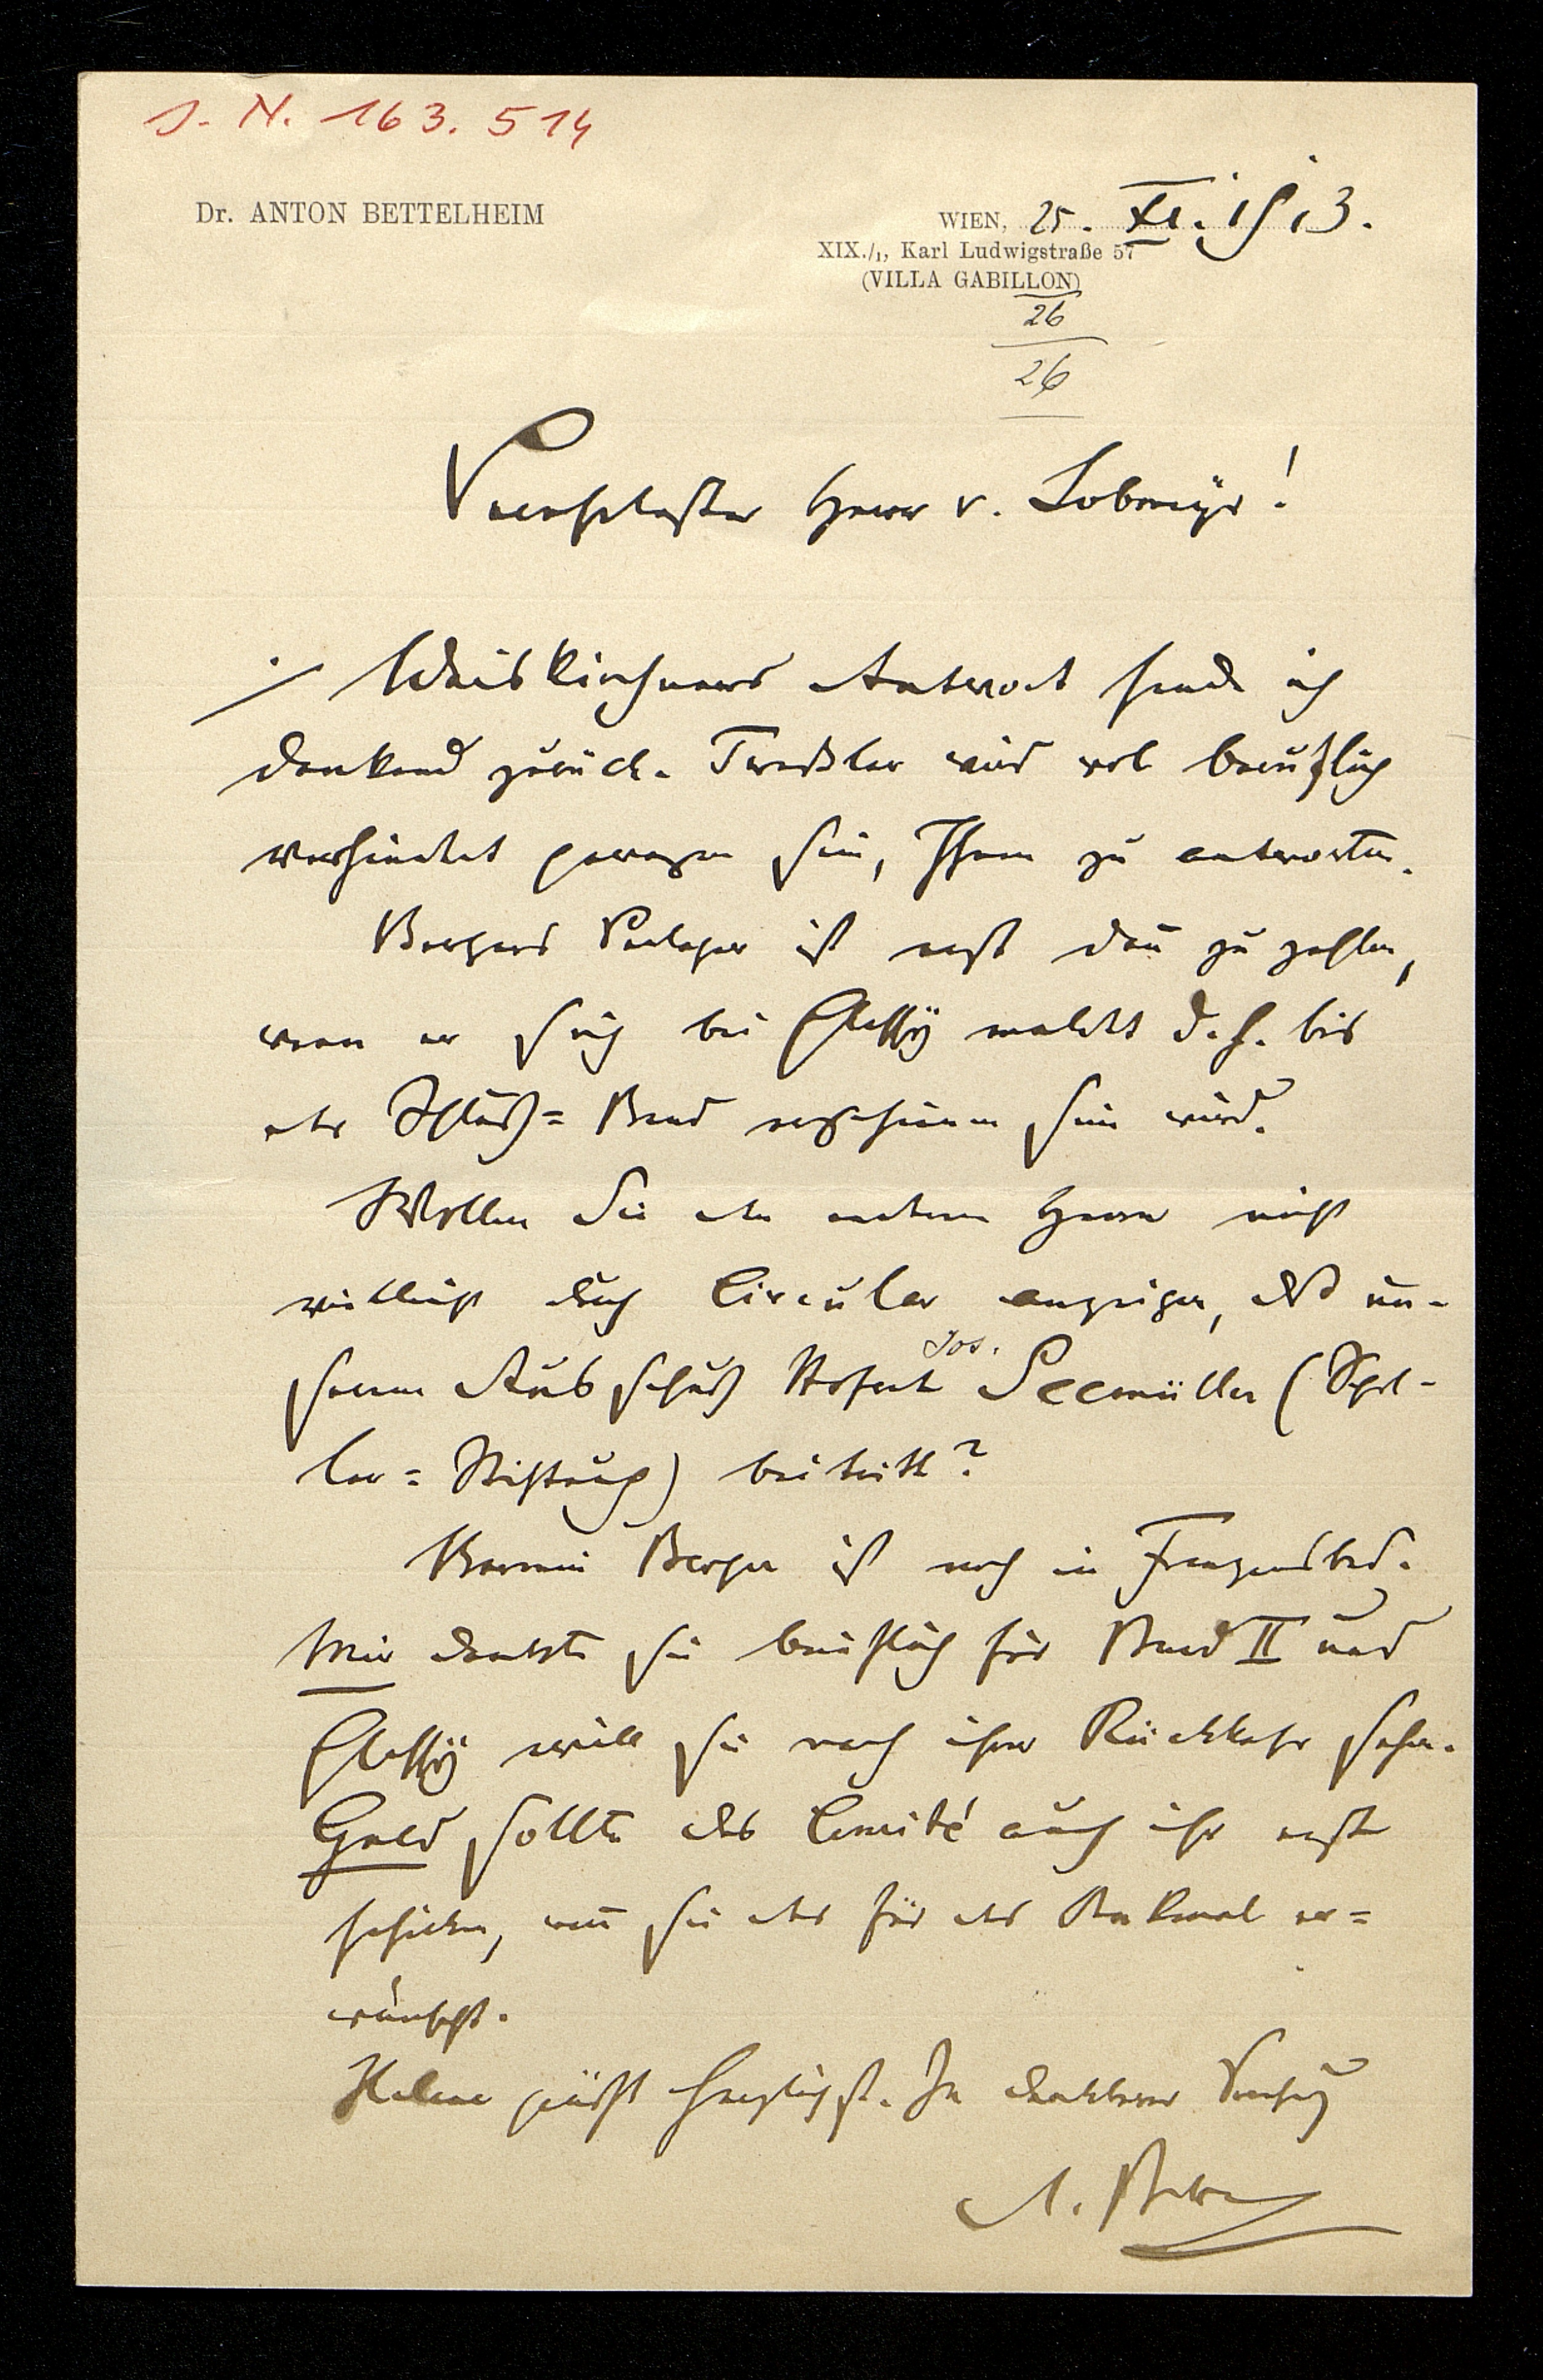 J. N. 163.514
Dr. ANTON BETTELHEIM
WIEN, 25. XI. 1913.
XIX./1, Karl Ludwigstraße 57
(VILLA GABILLON)
26
26
Verehrtester Herr v. Lobmeyr!
./. Weiskirchners Antwort sende ich
dankend zurück. wird wol beruflich
verhindert gewesen sein, Ihnen zu antworten.
Bergers Verleger ist erst dan̄ zu zahlen,
wenn er sich bei Glossy meldet d. h. bis
der Schluß-Band erschienen sein wird.
Wollen Sie den anderen Herrn nicht
vielleicht durch Circular anzeigen, daß un-
serem Ausschuß Hofrat Jos. Seemüller (Schil-
ler-Stiftung) beitritt?
Baronin Berger ist noch in Franzensbad.
Mir dankte sie brieflich für Band II und
Glossy will sie nach ihrer Rückkehr sehen.
Geld sollte das Comité auch ihr erst
schicken, wen̄ sie das für das Denkmal er-
wünscht.
Helene grüßt herzlichst. In dankbarer Verehrg
A. Bettelh